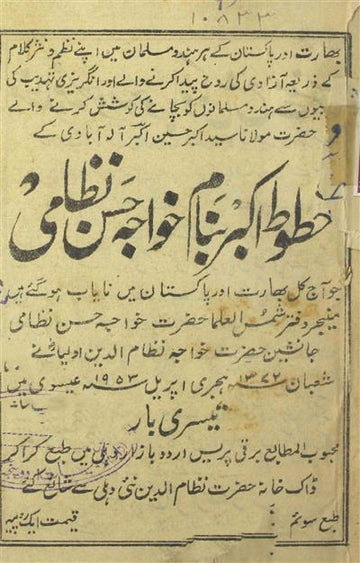 ۱۰۸۳۳
بھارت اور پاکستان کے ہر ہندو مسلمان میں اپنے نظم و نثر کلام
کے ذریعہ آزادی کی روح پیدا کرنے والے اور انگریزی تہذیب کی
سے ہندو مسلمانوں کو بچانے کی کوشش کرنے والے
حضرت مولانا سید اکبر حسین اکبر الہ آبادی کے
خطوط اکبر بنام خواجہ حسن نظامی
جو آج کل بھارت اور پاکستان میں نایاب ہو گئے ہیں
منیجر دفتر شمس العلما حضرت خواجہ حسن نظامی
جانشین حضرت خواجہ نظام الدین اولیاؒ نے
شعبان ۱۳۷۲ ہجری اپریل ۱۹۵۳ عیسوی میں
تیسری بار
محبوب المطابع برقی پریس اردو بازار دہلی میں طبع کرا کر
ڈاک خانہ حضرت نظام الدین نئی دہلی سے شائع کئے
طبع سوئم قیمت ایک روپیہ